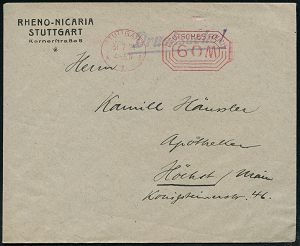 RHENO-NICARIA
STUTTGART
Kornerstraße
STUTTGART
Drucksache
60 M
Herrn
Kamill Häussler
Apotheker
Höchst / Main
Königsteinerstr. 46.